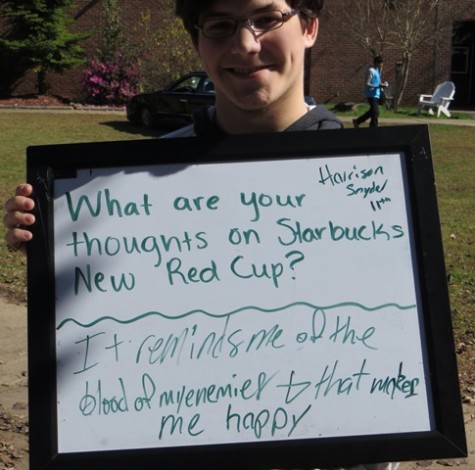 What are your
thoughts on Starbucks
New Red Cup?
Harrison
Snyder
11th
It reminds me of the
blood of my enemies & that makes
me happy